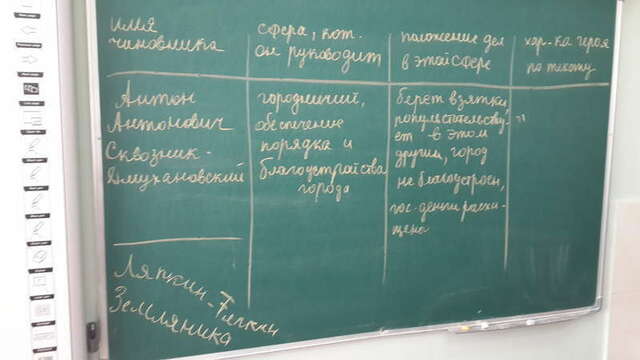 имя
чиновника
сфера, кот.
он руководит
положение дел
в этой сфере
хар-ка героя
по тексту
Антон
Антонович
Сквозник-
Дмухановский
городничий,
обеспечение
порядка и
благоустройства
города
берет взятки,
попустительству-
ет в этом
другим, город
не благоустроен,
гос. деньги расхи-
щены
Ляпкин-Тяпкин
Земляника